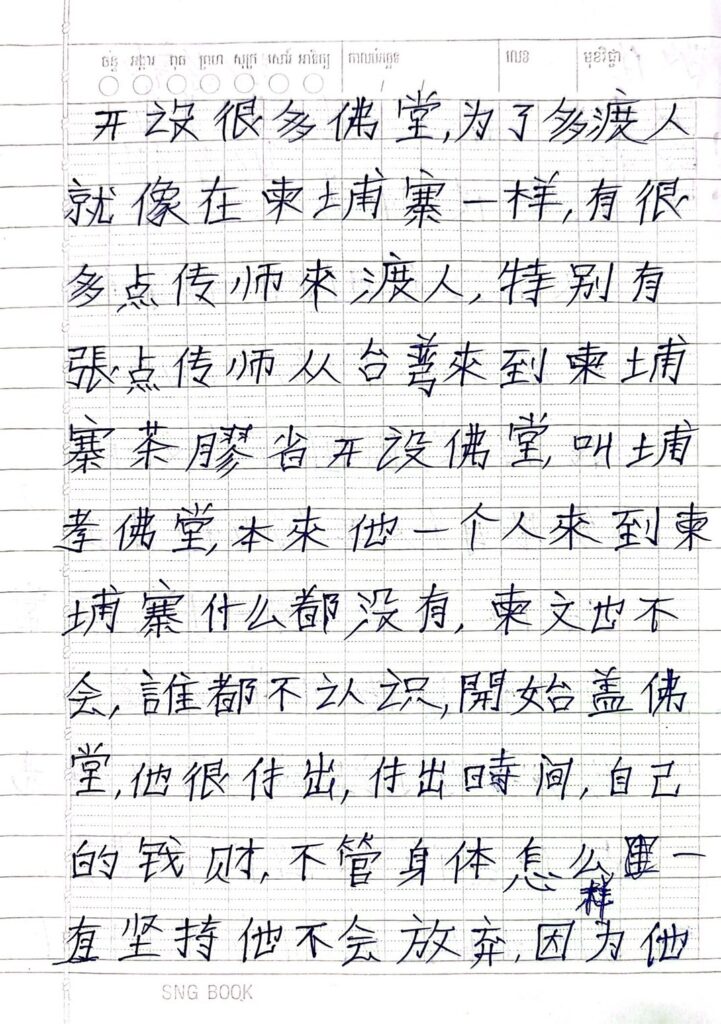 ច័ន្ទ អង្គារ ពុធ ព្រហ សុក្រ សៅរ៍ អាទិត្យ កាលបរិច្ឆេទ លេខ មុខវិជ្ជា
开设很多佛堂,为了多渡人
就像在柬埔寨一样,有很
多点传师來渡人,特别有
張点传师从台湾來到柬埔
寨茶膠省开设佛堂,叫埔
孝佛堂,本來他一个人來到柬
埔寨什么都没有,柬文也不
会,誰都不认识,開始盖佛
堂,他很付出,付出時间,自己
的钱财,不管身体怎么一
样
直坚持他不会放弃,因为他
SNG BOOK